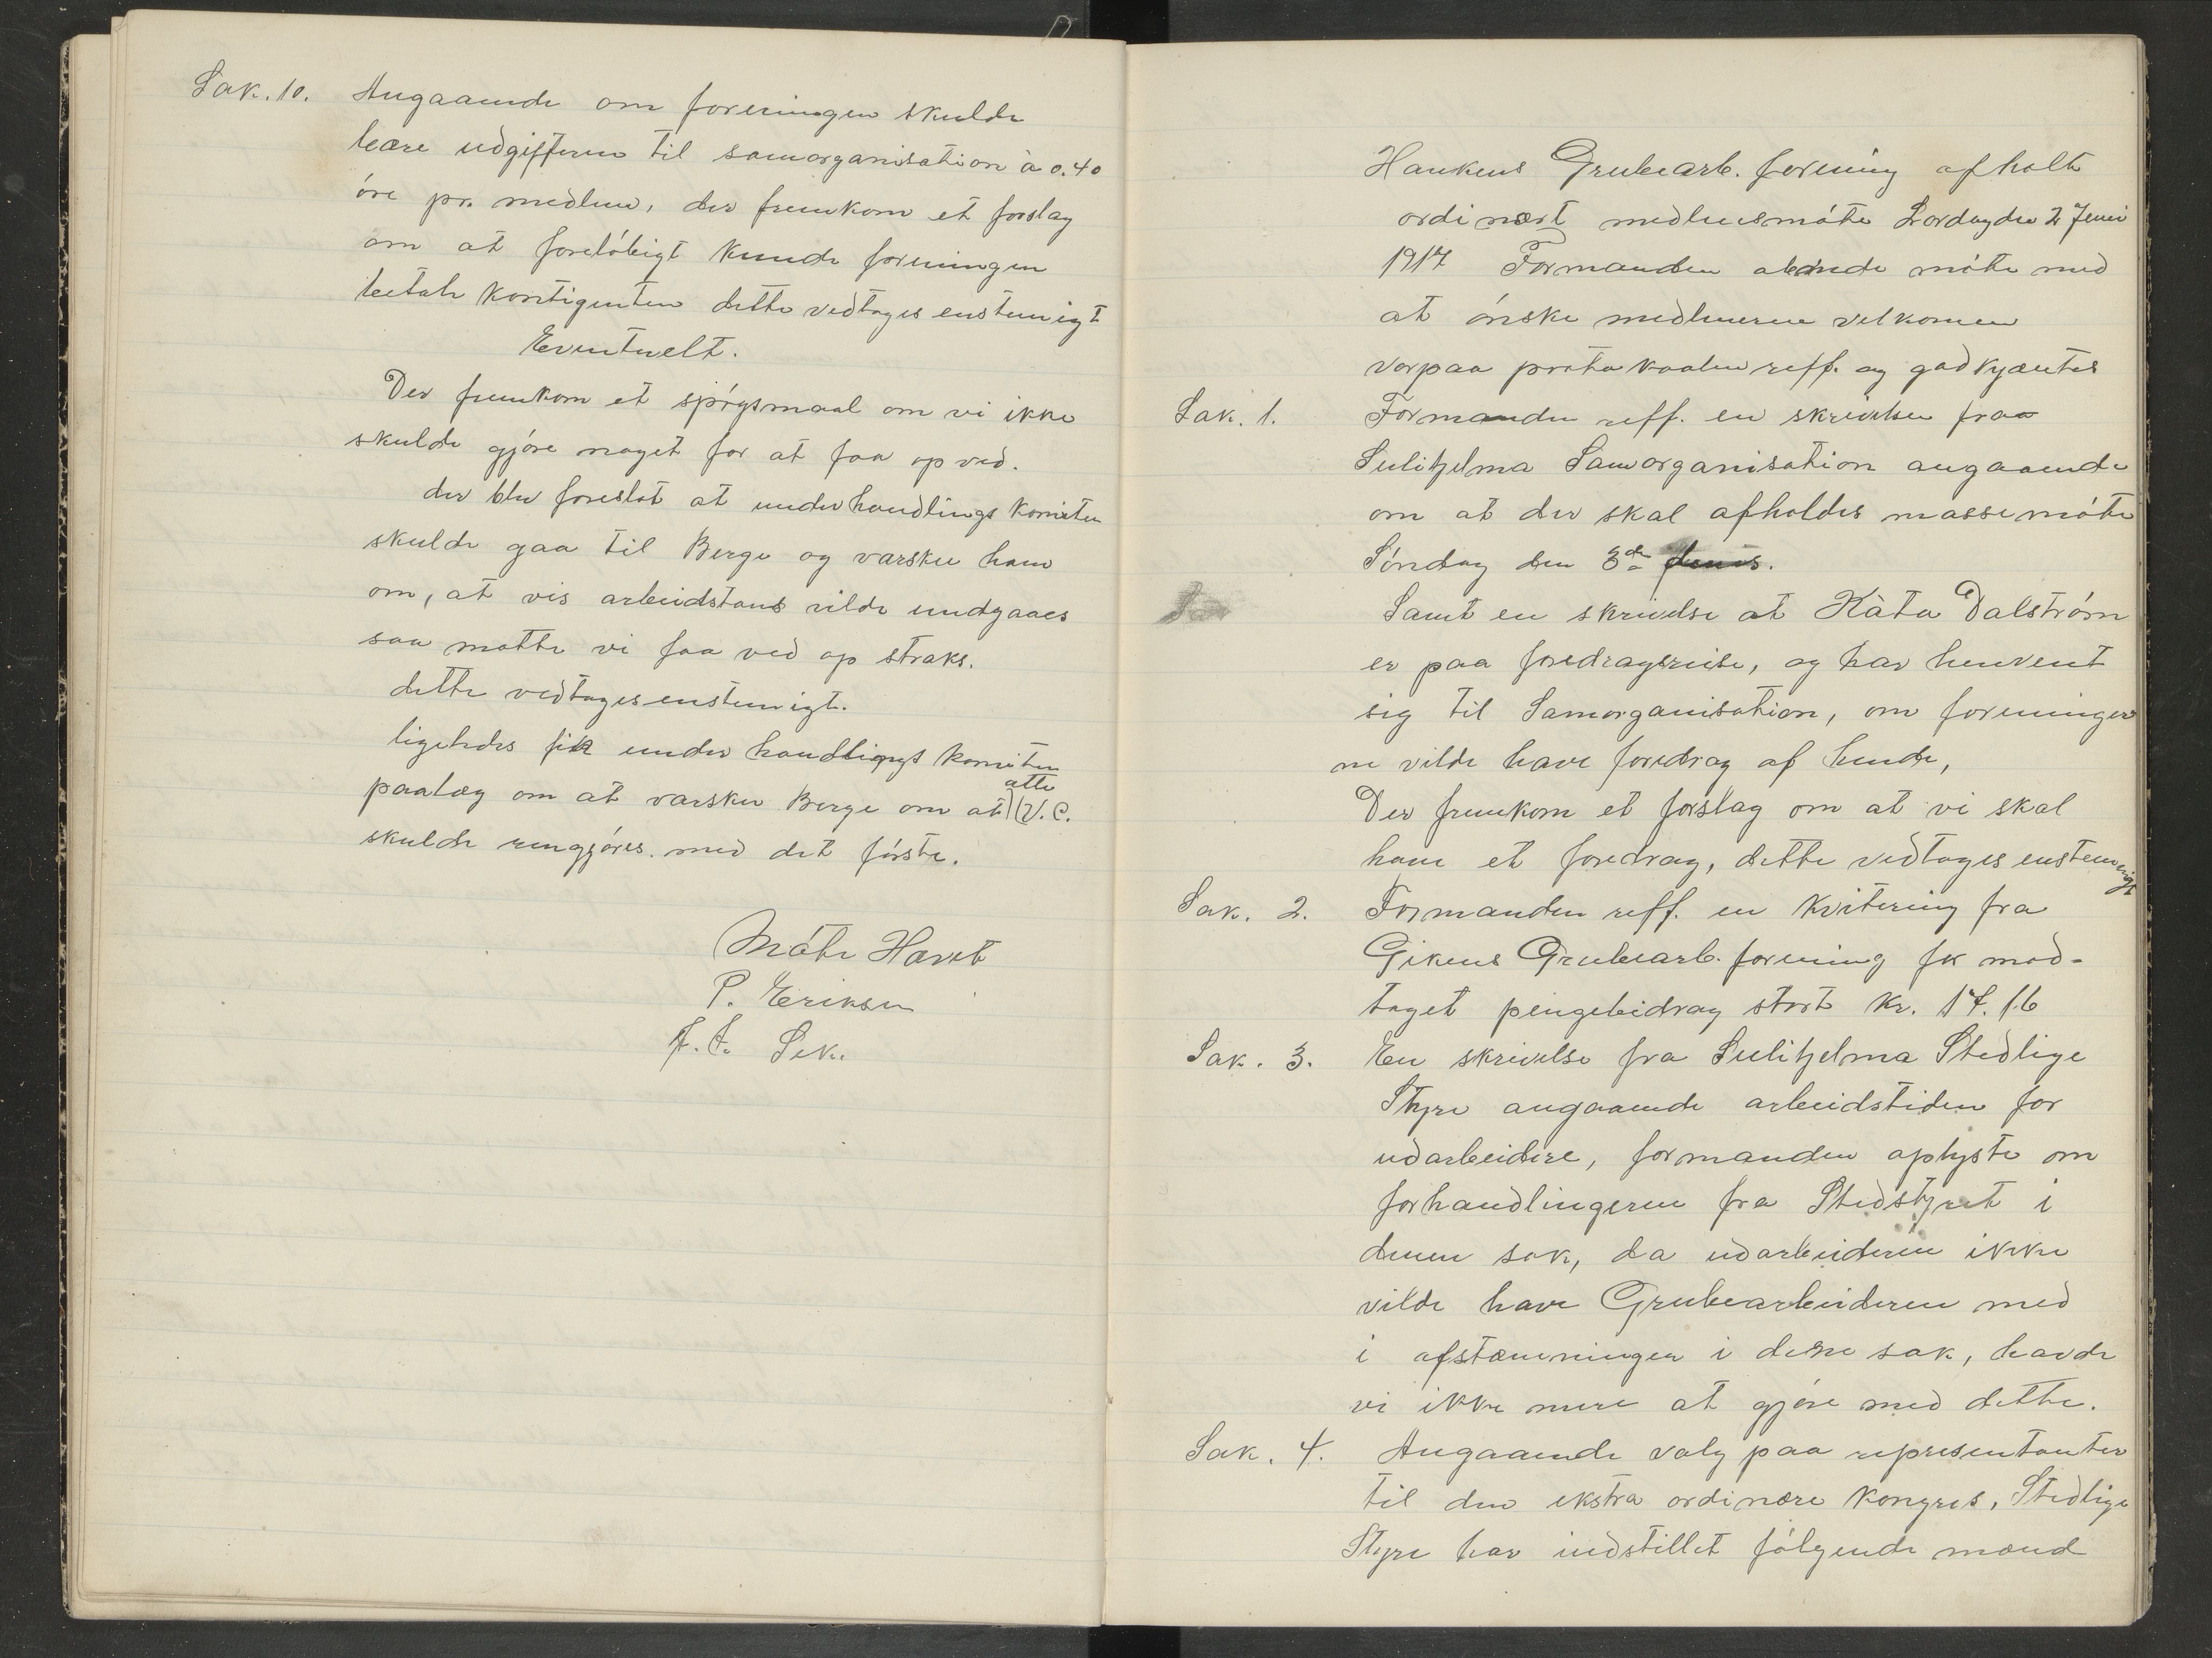 Sak. 10. Angaaende om foreningen skulde
bære udgifterne til samorganisation à 0.40
öre pr. medlem, der fremkom et forslag
om at foreløbigt kunde foreningen
betale kontigenten dette vedtages enstemigt
Eventuelt.
Der fremkom et spörgsmaal om vi ikke
skulde gjöre noget for at faa op ved.
der blev foreslat at underhandlings komiten
skulde gaa til Berge og varsku ham
om, at vis arbeidstans vilde undgaaes
saa motte vi faa ved op straks.
dette vedtages enstemigt.
ligeledes fik under handlings komiten
atte
paalæg om at varsku Berge om at (V.C.
skulde rengjöres. med det förste.
Möte Hævet
P. Eriksen
F. t. Sek.
Hankens Grubearb. forening afholt
ordinært medlemsmöte Lordag den 2 Juni
1917 Formanden abnede möte med
at önske medlemerne velkomen
vorpaa protokoolen reff. og godkjæntes
Sak. 1. Formanden reff. en skrivelse fraa
Sulitjelma Samorganisation angaaende
om at der skal afholdes massemöte
Söndag den 3de
Samt en skrivelse at Kàta Dalström
er paa foredragsreise, og har henvent
sig til Samorganisation, om foreninger
ne vilde have foredrag af hende,
Der fremkom et forslag om at vi skal
have et foredrag, dette vedtages enstemigt
Sak. 2. Formanden reff. en kvitering fra
Gikens Grubearb. forening for mod-
taget pengebidrag stort kr. 17.16
Sak. 3. En skrivelse fra Sulitjelma Stedlige
Styre angaaende arbeidstiden for
udarbeidere, formanden oplyste om
forhandlingerne fra Stedstyret i
denne sak, da udarbeiderne ikke
vilde have Grubearbeiderne med
i afstæmningen i dene sak, havde
vi ikke mere at gjöre med dette.
Sak. 4. Angaaende valg paa representanter
til den ekstra ordinære kongres, Stedlige
Styre har indstillet fölgende mænd